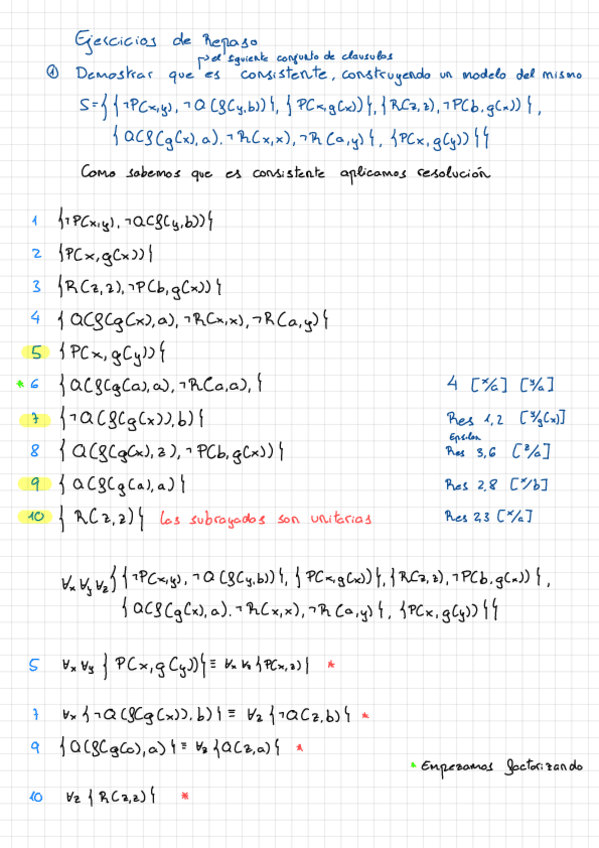 Ejercicios de Repaso
el siguiente conjunto de clausulas
① Demostrar que es consistente, construyendo un modelo del mismo
S={{¬P(x,y), ¬Q(f(y,b))}, {P(x,g(x))}, {R(z,z), ¬P(b,g(x))},
{Q(f(g(x),a), ¬R(x,x), ¬R(a,y)}, {P(x,g(y))}}
Como sabemos que es consistente aplicamos resolución
1 {¬P(x,y), ¬Q(f(y,b))}
2 {P(x,g(x))}
3 {R(z,z), ¬P(b,g(x))}
4 {Q(f(g(x),a), ¬R(x,x), ¬R(a,y)}
5 {P(x,g(y))}
* 6 {Q(f(g(a),a), ¬R(a,a), } 4 [x/a] [y/a]
7 {¬Q(f(g(x)),b)} Res 1,2 [y/g(x)]
8 {Q(f(g(x),z), ¬P(b,g(x))} Res 3,6 [z/a]
9 {Q(f(g(a),a)} Res 2,8 [x/b]
10 {R(z,z)} los subrayados son unitarias Res 2,3 [x/a]
∀x ∀y ∀z {{¬P(x,y), ¬Q(f(y,b))}, {P(x,g(x))}, {R(z,z), ¬P(b,g(x))},
{Q(f(g(x),a), ¬R(x,x), ¬R(a,y)}, {P(x,g(y))}}
5 ∀x ∀y {P(x,g(y))} ≡ ∀x ∀z {P(x,z)} *
7 ∀x {¬Q(f(g(x)),b)} ≡ ∀z {¬Q(z,b)} *
9 {Q(f(g(a),a)} ≡ ∀z {Q(z,a)} *
* Empezamos factorizando
10 ∀z {R(z,z)} *